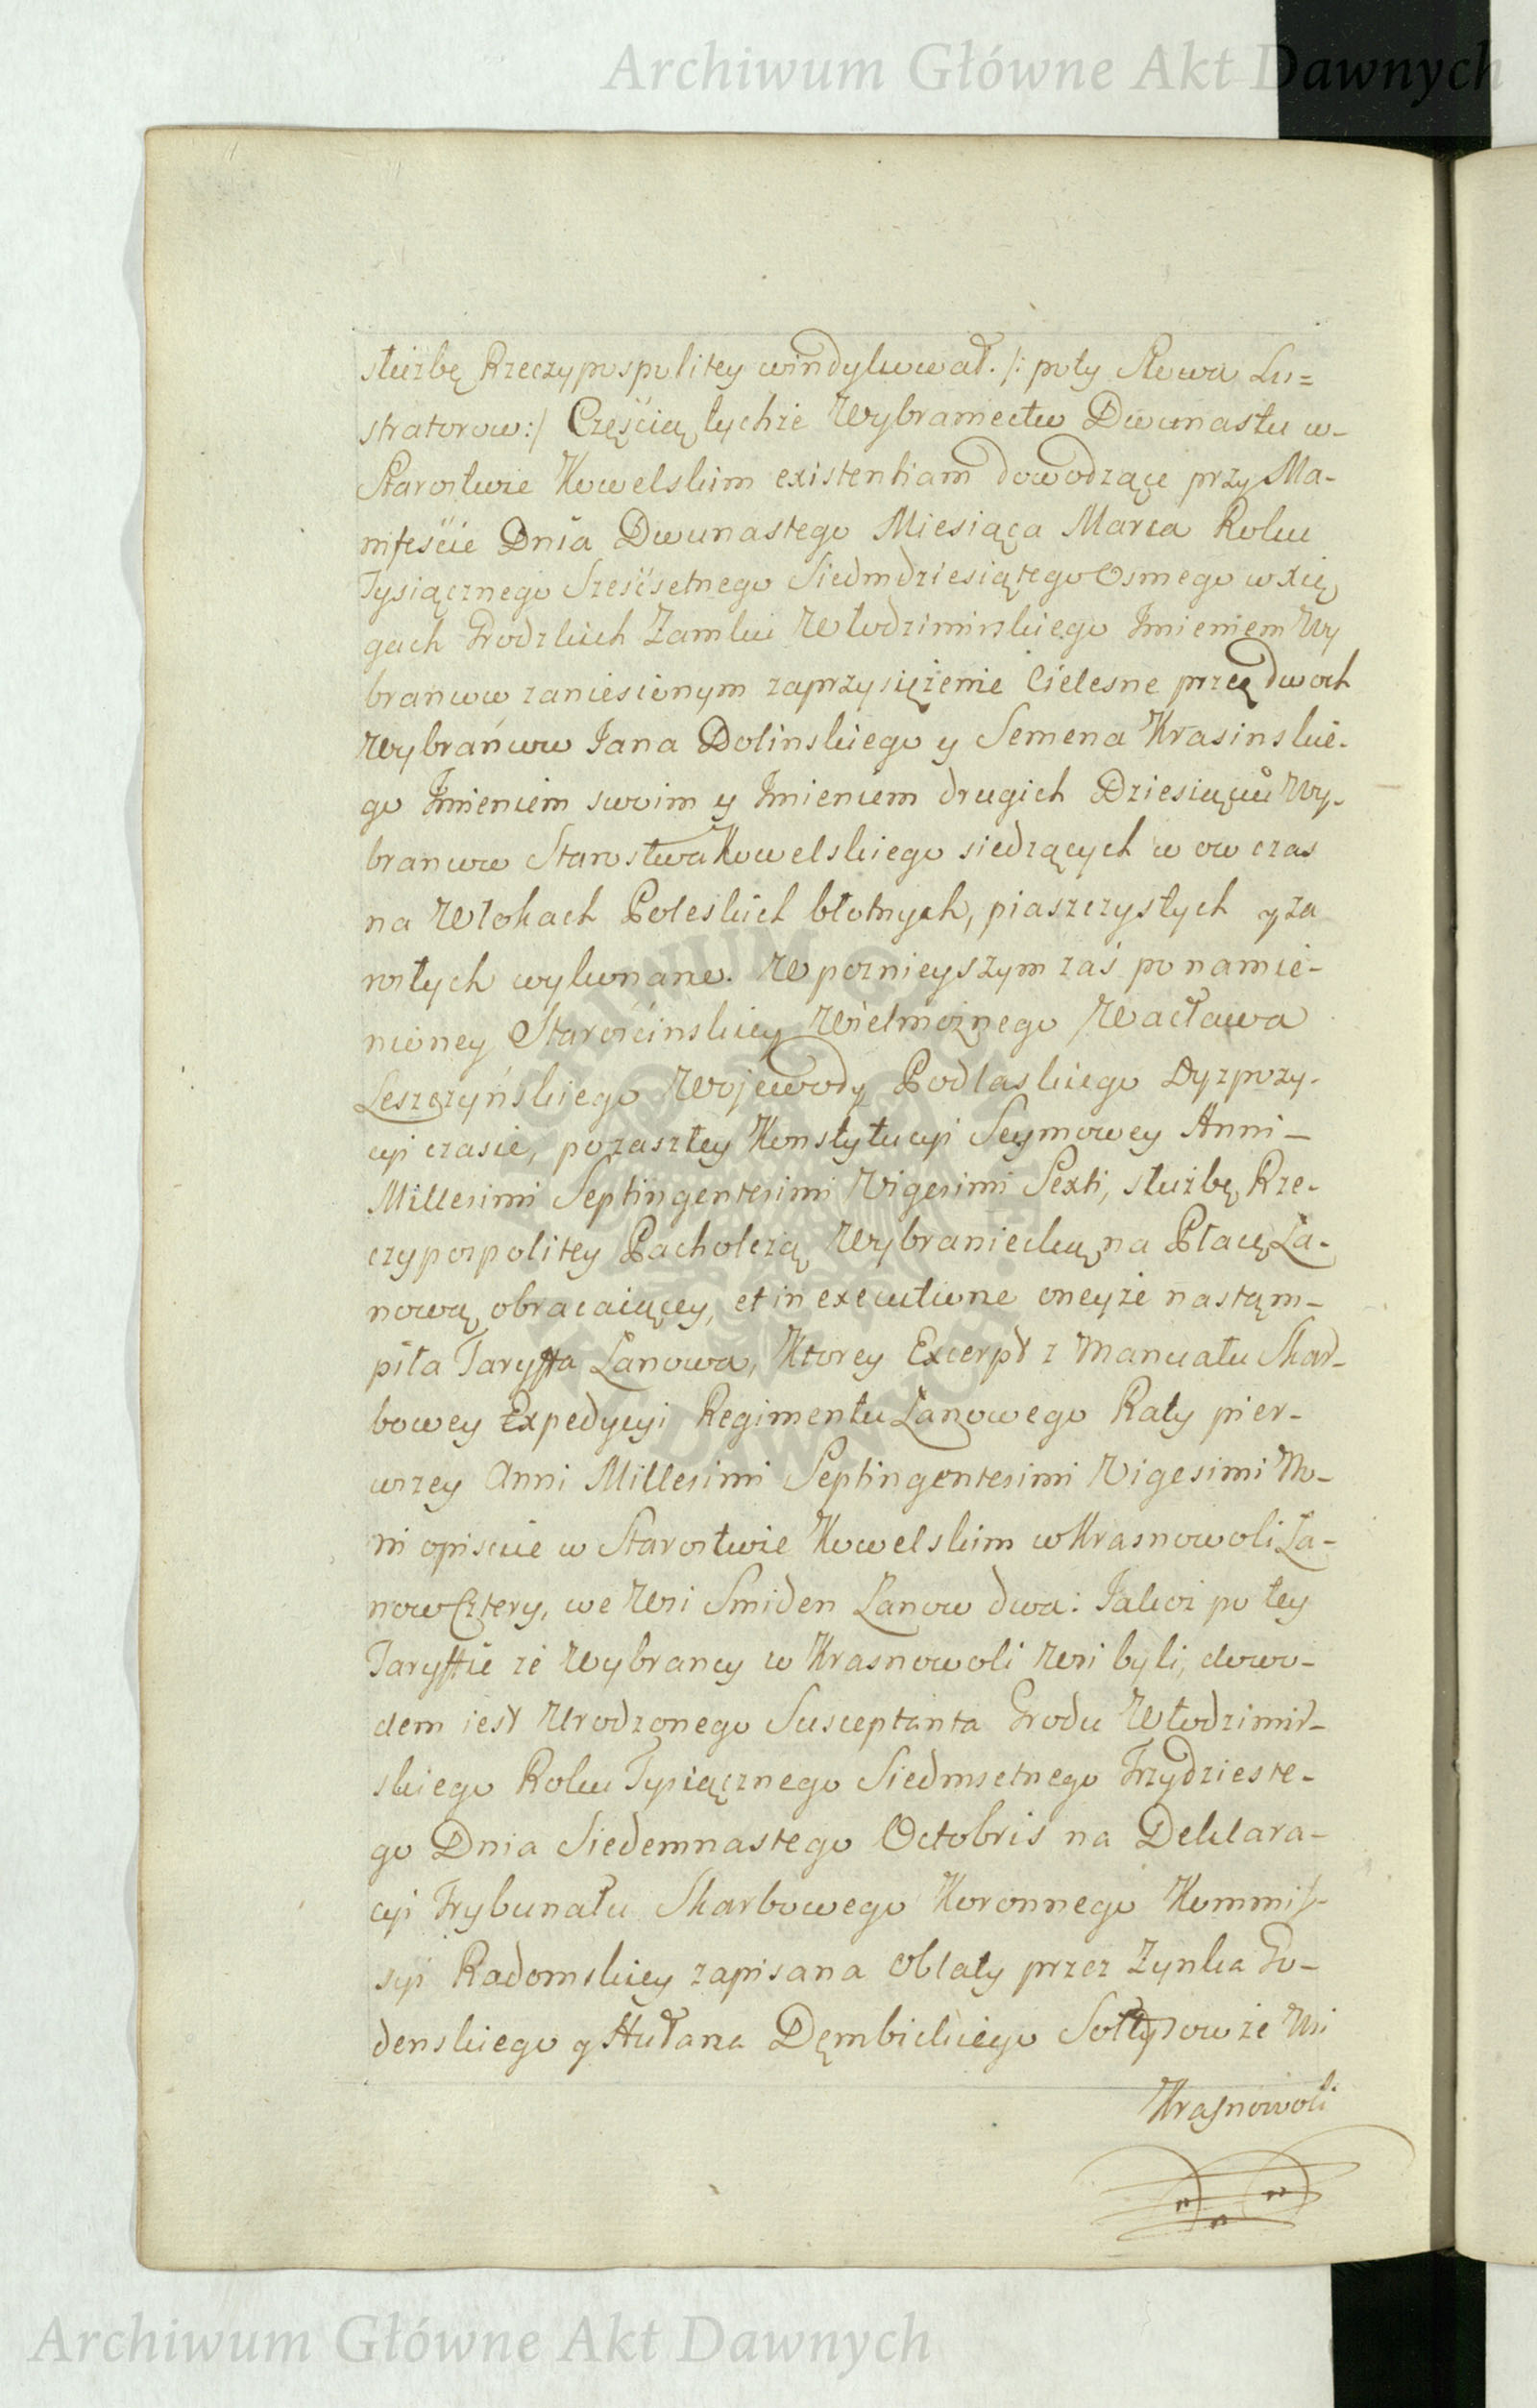 Archiwum Główne Akt Dawnych
służbę Rzeczypospolitey windykował. /: poty Słowa Lu=
stratorow:/ Częścią tychże Wybraniectw Dwunastu w-
Starostwie Kowelskim existentiam dowodzące przy Ma-
nifeście Dnia Dwunastego Miesiąca Marca Roku
Tysiącznego Sześćsetnego Siedmdziesiątego Osmego w xię
gach Grodzkich Zamku Włodzimirskiego Imieniem Wy
brancow zaniesionym zaprzysiężenie Cielesne przez dwoch
Wybrańcow Jana Dolinskiego y Semena Krasinskie-
go Imieniem swoim y Imieniem drugich Dziesiąciu Wy-
brancow Starostwa Kowelskiego siedzących w ow czas
na Włokach Poleskich błotnych, piaszczystych y za
rosłych wykonane. W poznieyszym zaś po namie-
nioney Starościnskiey Wielmożnego Wacława
Leszczyńskiego Wojewody Podlaskiego Dyzpozy-
cyi czasie, po zaszłey Konstytucyi Seymowey Anni-
Millesimi Septingentesimi Vigesimi Sexti, służbę Rze-
czypospolitey Pacholczą Wybraniecką na Płacę Ła-
nową obracaiącey, et in executione oneyże nastąm-
piła Taryffa Łanowa, Ktorey Excerpt z Manuału Skar-
bowey Expedycyi Regimentu Łanowego Raty pier-
wszey Anni Millesimi Septingentesimi Vigesimi No-
ni opisuie w Starostwie Kowelskim w Krasnowoli Ła-
now Cztery, we Wsi Smiden Łanow dwa: Jakoż po tey
Taryffie że Wybrancy w Krasnowoli Wsi byli, dowo-
dem iest Urodzonego Susceptanta Grodu Włodzimir-
skiego Roku Tysiącznego Siedmsetnego Trzydzieste-
go Dnia Siedemnastego Octobris na Deklara-
cyi Trybunału Skarbowego Koronnego Kommis-
syi Radomskiey zapisana Oblaty przez Zynka Go-
denskiego y Hułana Dęmbickiego Sołtysow ze Wsi
Krasnowoli
Archiwum Główne Akt Dawnych